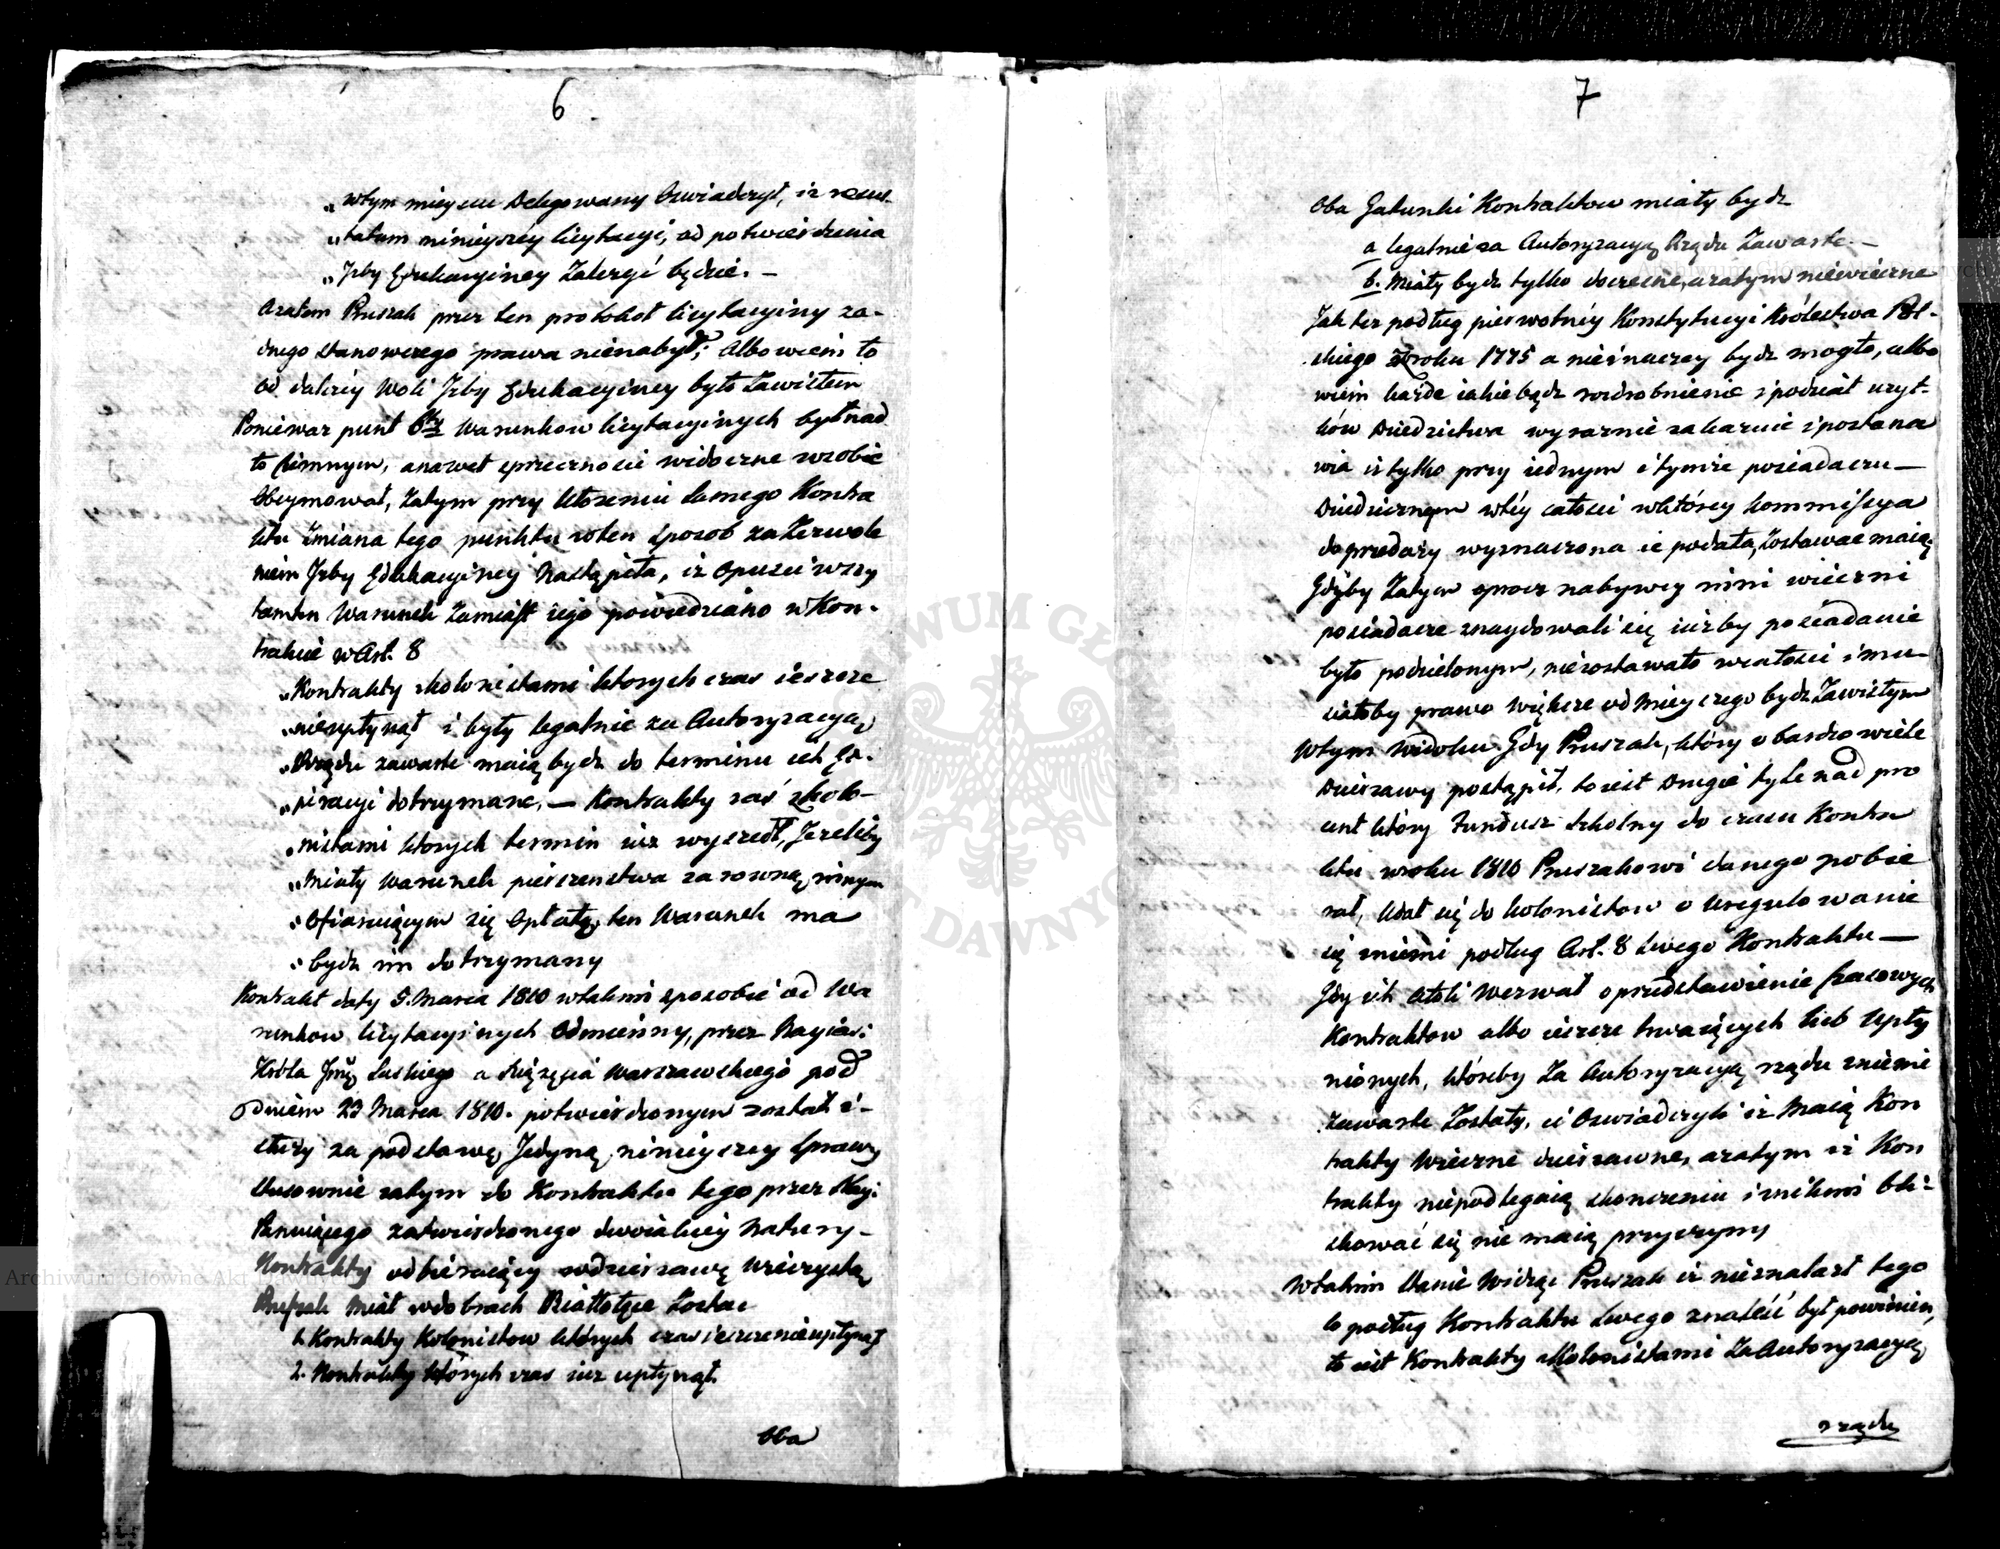 6
„wtym mieyscu Delegowany Oswiadczył, iż rezul-
„tatum ninieyszéy licytacyi, od potwierdzenia
„Izby Edukacyiney Zależyć będzie. —
azatem Pruszak przez ten protokoł licytacyiny ża-
dnego stanowczego prawa nienabył; Albowiem to
od dalszéy Woli Izby Edukacyiney było Zawisłem
Ponieważ punt 6ty Warunkow licytacyinych był nad
to Ciemnym, anawet sprzeczności widoczne wsobie
Obeymował, Zatym przy ułożeniu samego Kontra
ktu Zmiana tego punktu wten sposob zaZezwole
niem Izby Edukacyiney Nastąpiła, iż opuściwszy
tamten Warunek Zamiast iego powiedziano w Kon-
trakcie w Art. 8
„Kontrakty zkolonistami ktorych czas ieszcze
„nieupłynął i były legalnie za Autoryzacyą
„Rządu zawarte maią bydz do terminu ich Ex-
„piracyi dotrzymane. — Kontrakty zaś zkolo-
„nistami ktorych termin iuz wyszedł, Jezeliby
„miały Warunek pierszenstwa za rowną innym
„ofiaruiącym się Opłatą, ten Warunek ma
„bydz im dotrzymany
Kontrakt daty 5. Marca 1810 wtakim sposobie od Wa
runkow licytacyinych Odmienny, przez Nayias:
Króla Saskiego a Xiążęcia Warszawskiego pod
dniem 23 Marca 1810. potwierdzonym został i
służy za podstawę Jedyną ninieyszey sprawy
stosownie zatym do Kontraktu tego przez Nay:
Panuiącego zatwierdzonego dwoiakiey Natury
Kontrakty odbieraiący wdzierzawę Wieczystą
Pruszak Miał wdobrach Białłołęce Zostać
1. Kontrakty Kolonistow których czas ieszcze nieupłynął
2. Kontrakty których czas iuz upłynął.
Oba
7
Oba Gatunki Kontraktow miały bydz
a legalnie za Autoryzacyą Rządu Zawarte. —
b. Miały bydz tylko doczesne, azatym niewieczne
Jak tez podług pierwotnéy Konstytucyi Królestwa Pol-
skiego zroku 1775 a nieinaczey bydz mogło, albo
wiem każde iakie bądz rozdrobnienie i podział użyt-
ków Dziedzictwa wyraznie zakazuie i postana
wia iz tylko przy iednym i tymże posiadaczu —
Dziedzicznym wtéy całości wktórey Kommissya
do przedazy wyznaczona ie podała, Zostawac maią
Gdyby Zatym oprocz nabywcy inni wieczni
posiadacze znaydowali się iużby posiadanie
było podzielonym, niezostawało wcałości i mu-
siałoby prawo Większe od Mnieyszego bydz Zawisłym
Wtym Widoku Gdy Pruszak, który o bardzo wiele
Dzierzawy postąpił, to iest Drugie tyle nad pro
cent który Fundusz Szkolny do czasu Kontra
ktu wroku 1810 Pruszakowi danego pobie
rał, Udał się do kolonistow o uregulowanie
się zniemi podług Art. 8 swego Kontraktu —
Gdy ich Atoli Wezwał o przedstawienie Czasowych
Kontraktow albo ieszcze trwaiących lub Upły
nionych, któreby Za Autoryzacyą rządu zniemi
zawarte Zostały, ci Oswiadczyli iz Maią Kon
trakty Wieczno dzierzawne, azatym iz Kon
trakty niepodlegaią skonczeniu i znikim Ukł-
skować się nie maią przyczyny
Wtakim Stanie Widząc Pruszak iz nieznalazł tego
co podług Kontraktu swego znaleść był powinien,
to iest Kontrakty zKolonistami Za Autoryzacyą
rządu